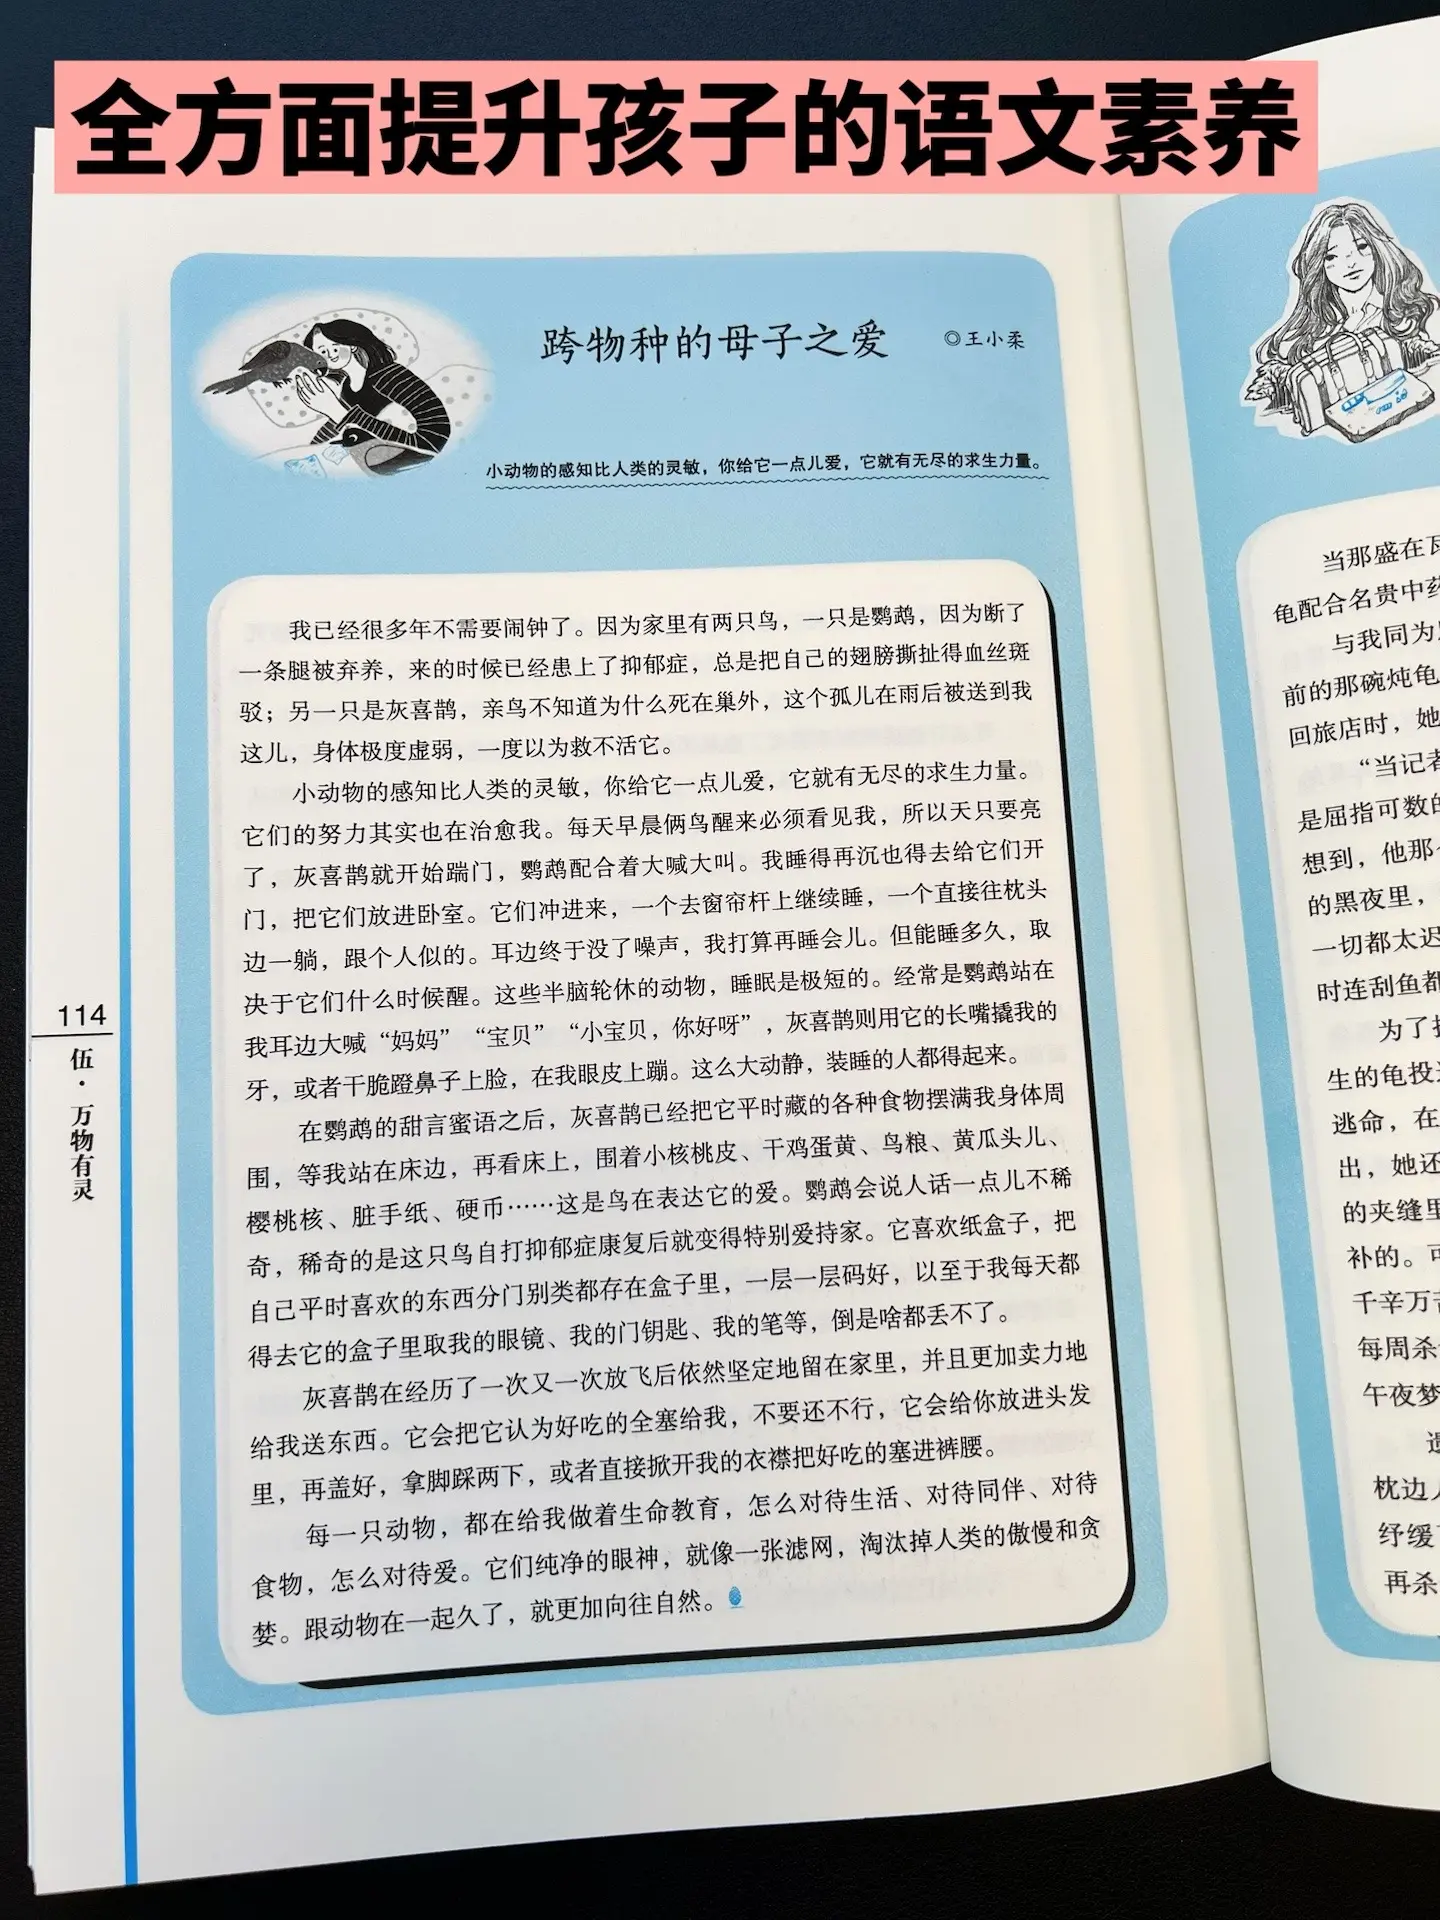 全方面提升孩子的语文素养
跨物种的母子之爱
◎王小柔
小动物的感知比人类的灵敏，你给它一点儿爱，它就有无尽的求生力量。
我已经很多年不需要闹钟了。因为家里有两只鸟，一只是鹦鹉，因为断了
一条腿被弃养，来的时候已经患上了抑郁症，总是把自己的翅膀撕扯得血丝斑
驳；另一只是灰喜鹊，亲鸟不知道为什么死在巢外，这个孤儿在雨后被送到我
这儿，身体极度虚弱，一度以为救不活它。
小动物的感知比人类的灵敏，你给它一点儿爱，它就有无尽的求生力量。
它们的努力其实也在治愈我。每天早晨俩鸟醒来必须看见我，所以天只要亮
了，灰喜鹊就开始踹门，鹦鹉配合着大喊大叫。我睡得再沉也得去给它们开
门，把它们放进卧室。它们冲进来，一个去窗帘杆上继续睡，一个直接往枕头
边一躺，跟个人似的。耳边终于没了噪声，我打算再睡会儿。但能睡多久，取
决于它们什么时候醒。这些半脑轮休的动物，睡眠是极短的。经常是鹦鹉站在
我耳边大喊“妈妈”“宝贝”“小宝贝，你好呀”，灰喜鹊则用它的长嘴撬我的
牙，或者干脆蹬鼻子上脸，在我眼皮上蹦。这么大动静，装睡的人都得起来。
在鹦鹉的甜言蜜语之后，灰喜鹊已经把它平时藏的各种食物摆满我身体周
围，等我站在床边，再看床上，围着小核桃皮、干鸡蛋黄、鸟粮、黄瓜头儿、
樱桃核、脏手纸、硬币……这是鸟在表达它的爱。鹦鹉会说人话一点儿不稀
奇，稀奇的是这只鸟自打抑郁症康复后就变得特别爱持家。它喜欢纸盒子，把
自己平时喜欢的东西分门别类都存在盒子里，一层一层码好，以至于我每天都
得去它的盒子里取我的眼镜、我的门钥匙、我的笔等，倒是啥都丢不了。
灰喜鹊在经历了一次又一次放飞后依然坚定地留在家里，并且更加卖力地
给我送东西。它会把它认为好吃的全塞给我，不要还不行，它会给你放进头发
里，再盖好，拿脚踩两下，或者直接掀开我的衣襟把好吃的塞进裤腰。
每一只动物，都在给我做着生命教育，怎么对待生活、对待同伴、对待
食物，怎么对待爱。它们纯净的眼神，就像一张滤网，淘汰掉人类的傲慢和贪
婪。跟动物在一起久了，就更加向往自然。
114
伍·万物有灵
当那盛在瓦
龟配合名贵中药
与我同为
前的那碗炖龟
回旅店时，她
“当记者
是屈指可数的
想到，他那
的黑夜里，
一切都太迟
时连刮鱼都
为了
生的龟投
逃命，在
出，她还
的夹缝里
补的。可
千辛万苦
每周杀
午夜梦
枕边人
纾缓
再杀